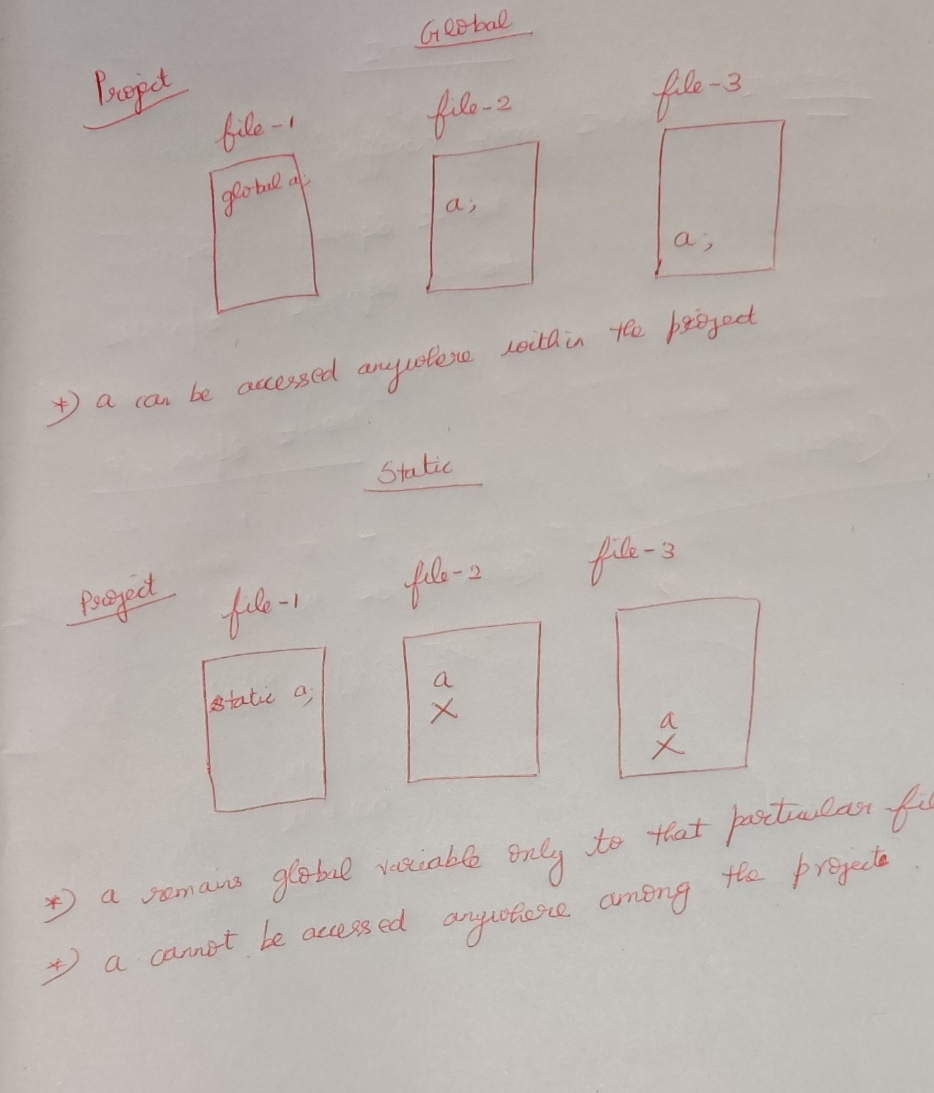 Global
Project
file-1 file-2 file-3
global a;
a;
a;
*) a can be accessed anywhere within the project
Static
Project
file-1 file-2 file-3
static a;
a
X
a
X
*) a remans global variable only to that particular fil
*) a cannot be accessed anywhere among the projects.